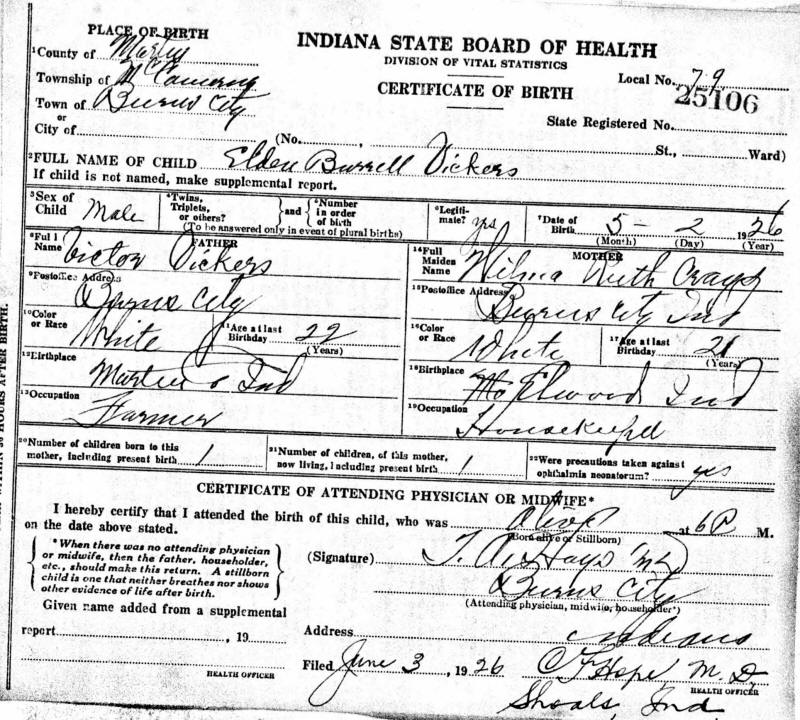 PLACE OF BIRTH
INDIANA STATE BOARD OF HEALTH
DIVISION OF VITAL STATISTICS
CERTIFICATE OF BIRTH
1County of Martin
Township of
Town of Burns City
or
City of
Local No. 79
25106
State Registered No.
(No. , St., Ward)
2FULL NAME OF CHILD Elden Burrell Vickers
If child is not named, make supplemental report.
3Sex of Child Male
4Twins, Triplets, or others?
and
5Number in order of birth
(To be answered only in event of plural births)
6Legiti-mate? yes
7Date of Birth 5 - 2 1926
(Month) (Day) (Year)
FATHER
8Full Name Victor Vickers
9Postoffice Address
Burns City
10Color or Race White
11Age at last Birthday 22
(Years)
12Birthplace
Martin Co Ind
13Occupation
Farmer
MOTHER
14Full Maiden Name Wilma Ruth
15Postoffice Address
Burns City Ind
16Color or Race White
17Age at last Birthday 21
(Years)
18Birthplace
Elwood Ind
19Occupation
Housekeeper
20Number of children born to this mother, including present birth 1
21Number of children, of this mother, now living, including present birth 1
22Were precautions taken against ophthalmia neonatorum? yes
CERTIFICATE OF ATTENDING PHYSICIAN OR MIDWIFE*
I hereby certify that I attended the birth of this child, who was alive at 6 P M.
(Born alive or Stillborn)
on the date above stated.
*When there was no attending physician
or midwife, then the father, householder,
etc., should make this return. A stillborn
child is one that neither breathes nor shows
other evidence of life after birth.
(Signature) T. A. Hays MD
Burns City
(Attending physician, midwife, householder*)
Given name added from a supplemental
report , 19
HEALTH OFFICER
Address Indiana
Filed June 3, 1926 C F Hope M. D.
HEALTH OFFICER
Shoals, Ind
HOURS AFTER BIRTH.